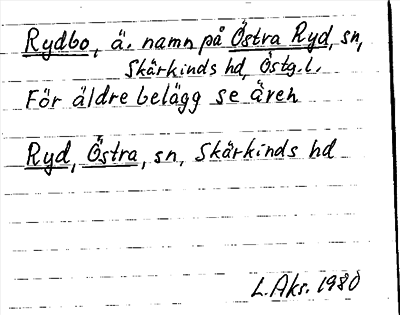 Rydbo, ä. namn på Östra Ryd, sn,
Skärkinds hd, Östg.l.
För äldre belägg se även
Ryd, Östra, sn, Skärkinds hd
L. Aks. 1980